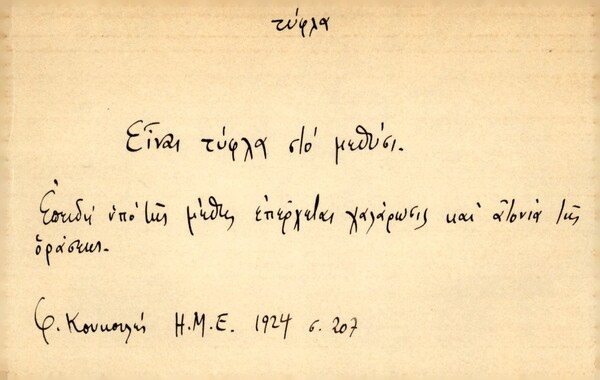 τύφλα
Εἶναι τύφλα στό μεθύσι.
Ἐπειδή ὑπό τῆς μέθης ἐπέρχεται χαλάρωσις καί ἀτονία τῆς
ὁράσεως.
Φ. Κουκουλές Η.Μ.Ε. 1924 σ. 207